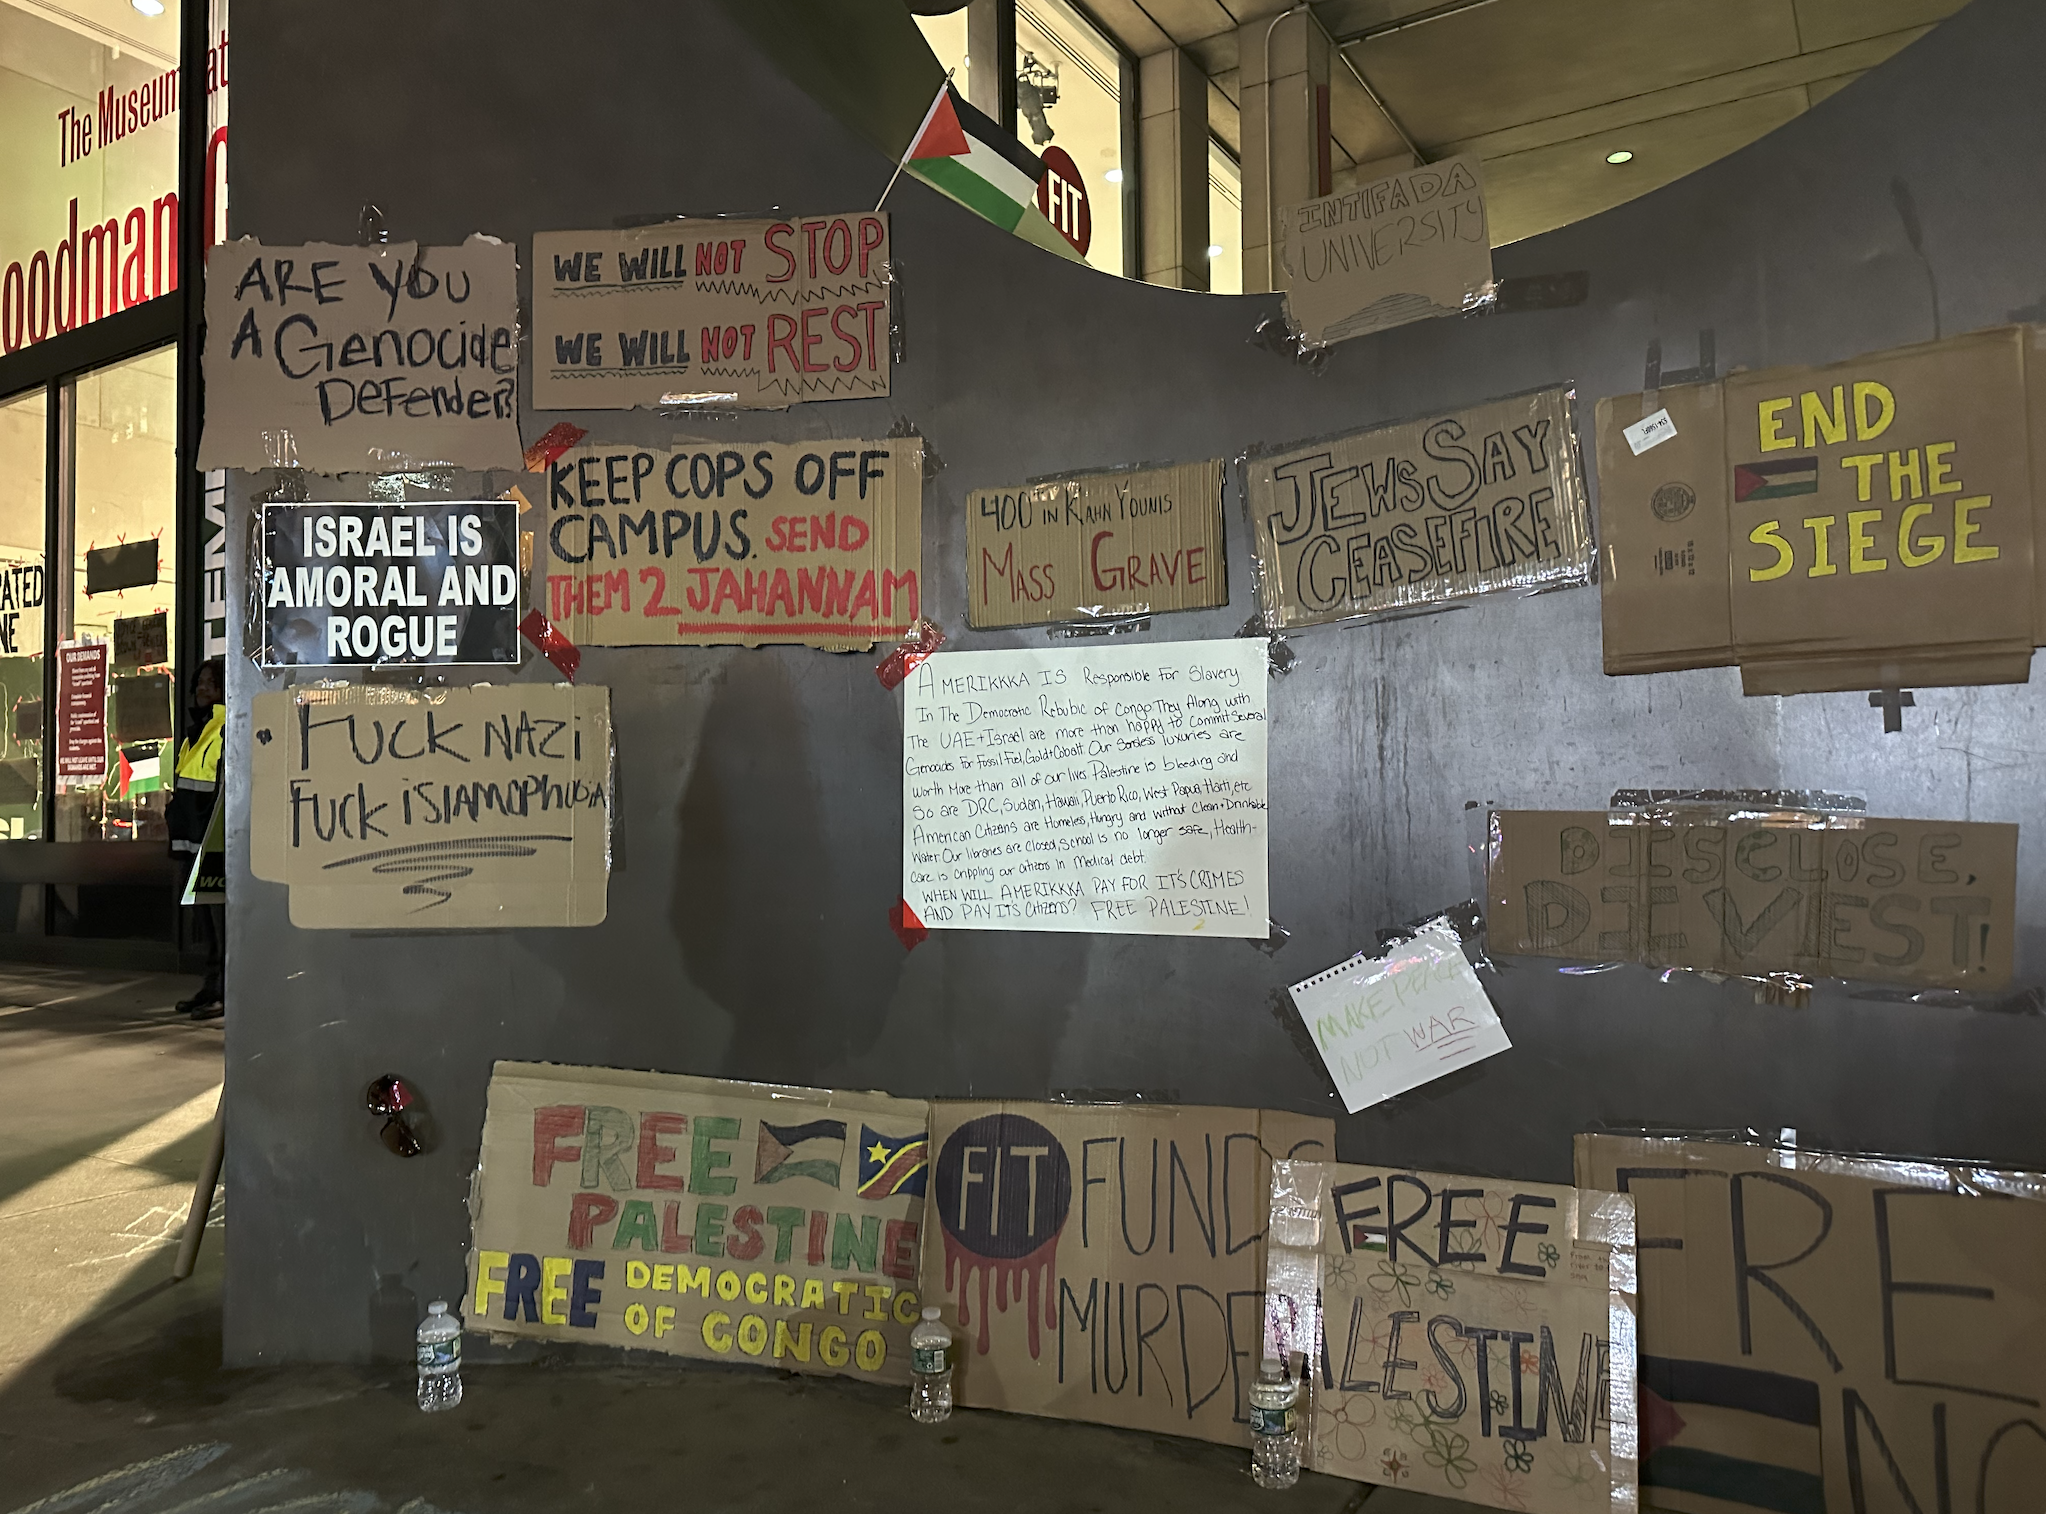 The Museum at
oodman
FIT
INTIFADA
UNIVERSITY
ARE YOU
A GENOCIDE
DEFENDER?
WE WILL NOT STOP
WE WILL NOT REST
END
THE
SIEGE
KEEP COPS OFF
CAMPUS. SEND
THEM 2 JAHANNAM
400 IN KAHN YOUNIS
MASS GRAVE
JEWS SAY
CEASEFIRE
ISRAEL IS
AMORAL AND
ROGUE
OUR DEMANDS
FUCK NAZI
FUCK ISLAMOPHOBIA
AMERIKKKA IS Responsible For Slavery
In The Democratic Rebubic of Congo They Along with
The UAE+Israel are more than happy to commit Several
Genocides For Fossil Fuel, Gold+Cobalt. Our Sensless luxuries are
worth More than all of our lives. Palestine is bleeding and
So are DRC, Sudan, Hawaii, Puerto Rico, West Papua, Haiti, etc
American Citizens are Homeless, Hungry and without Clean+Drinkable
Water. Our libraries are closed, School is no longer safe, Health-
care is crippling our citizens in Medical debt.
WHEN WILL AMERIKKKA PAY FOR IT'S CRIMES
AND PAY ITS Citizens? FREE PALESTINE!
DISCLOSE,
DIVEST!
MAKE PEACE
NOT WAR
FREE
PALESTINE
FREE DEMOCRATIC
OF CONGO
FIT FUNDS
MURDE
FREE
ALESTINE
FRE